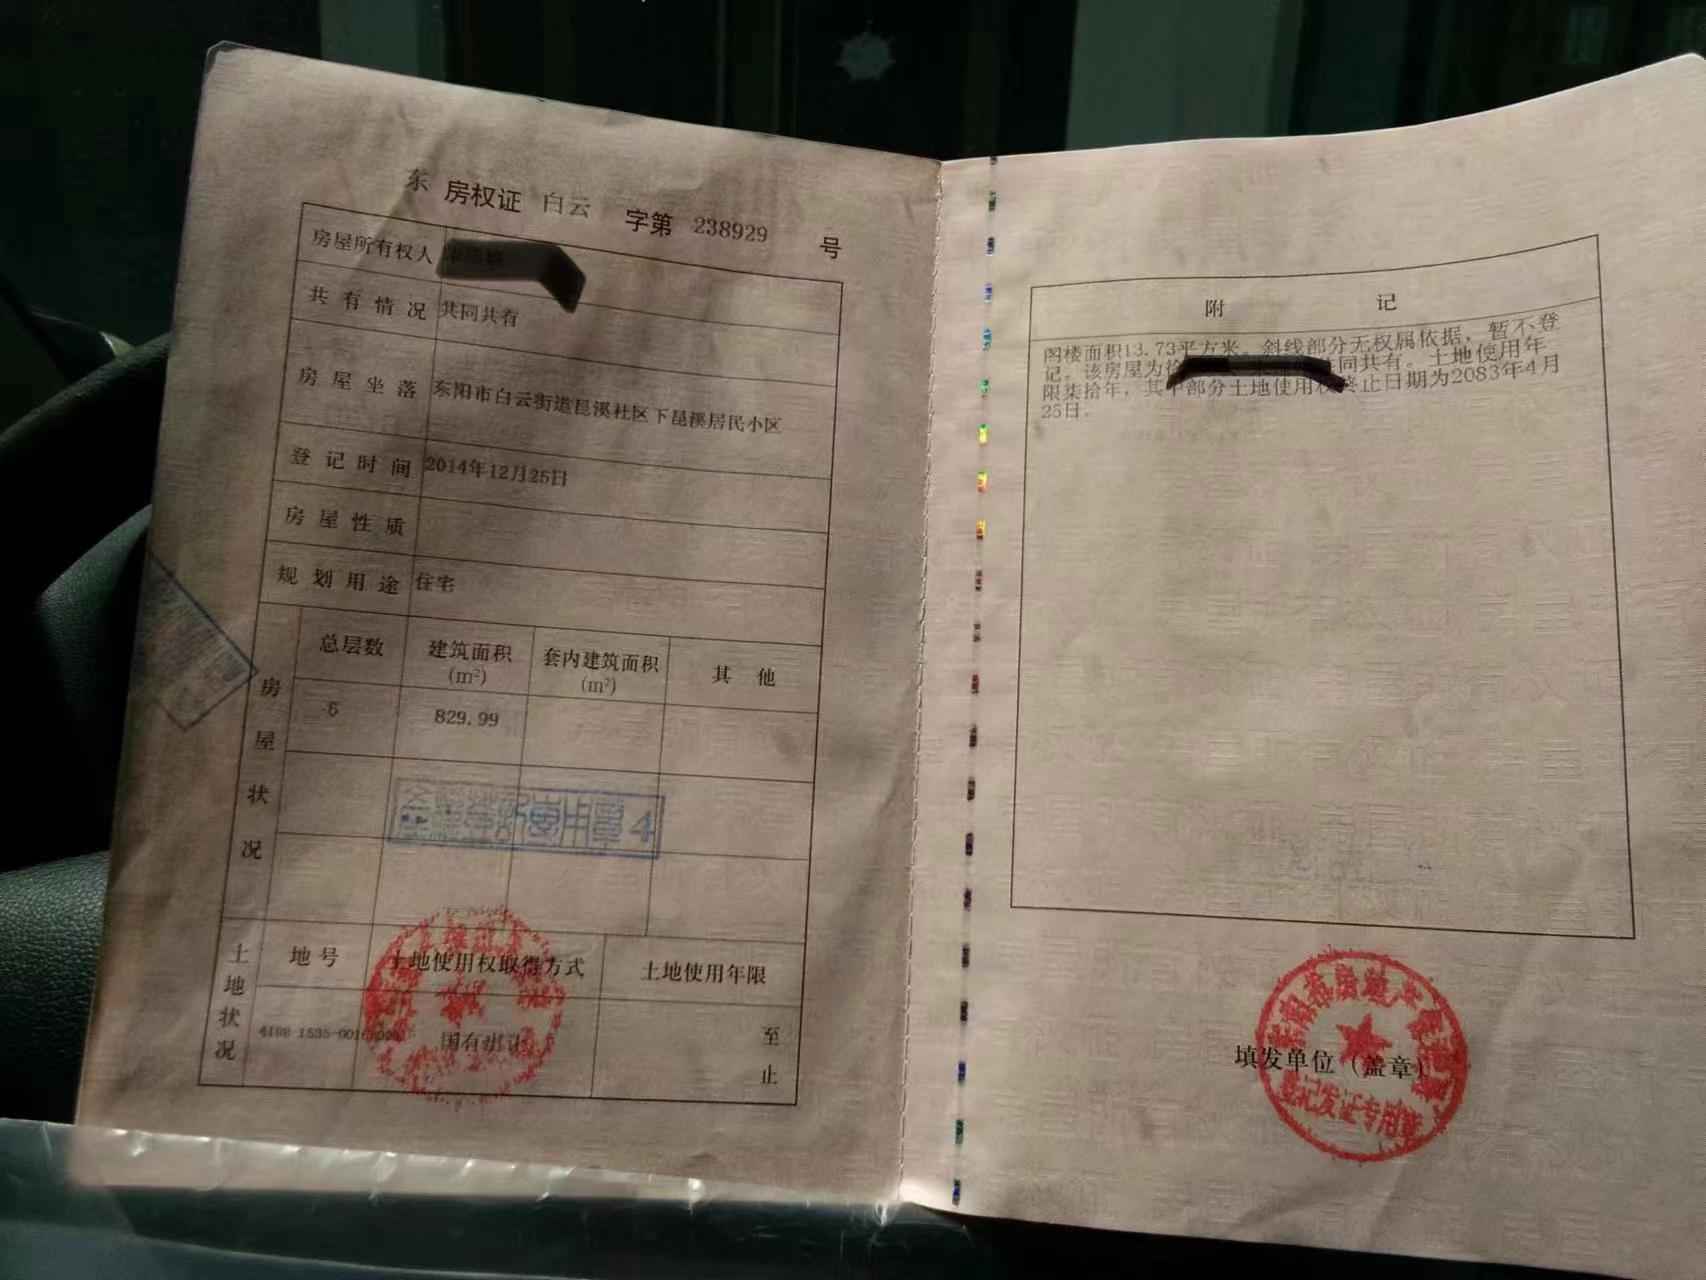 东 房权证 白云 字第 238929 号
房屋所有权人
共有情况 共同共有
房屋坐落 东阳市白云街道昆溪社区下昆溪居民小区
登记时间 2014年12月25日
房屋性质
规划用途 住宅
房屋状况
总层数 建筑面积(m²) 套内建筑面积(m²) 其他
6 829.99
4
土地状况
地号 土地使用权取得方式 土地使用年限
国有出让 至
止
附记
阁楼面积13.73平方米。斜线部分无权属依据，暂不登
记。该房屋为 共同共有。土地使用年
限柒拾年，其中部分土地使用权终止日期为2083年4月
25日。
填发单位（盖章）
登记发证专用章